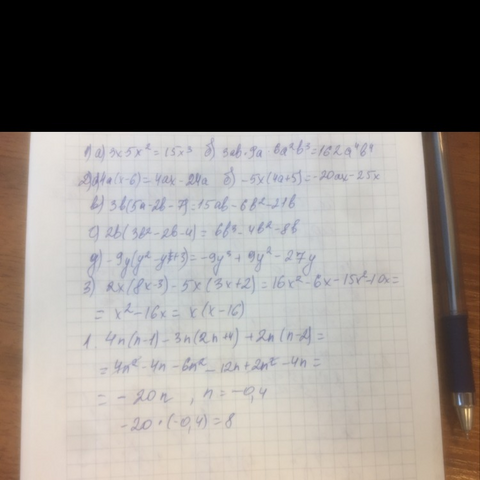 1) а) 3x·5x² = 15x³ б) 3ab·9a·6a²b³ = 162a⁴b⁴
2) а) 4a(x-6) = 4ax - 24a б) -5x(4a+5) = -20ax - 25x
в) 3b(5a-2b-7) = 15ab - 6b² - 21b
с) 2b(3b²-2b-4) = 6b³ - 4b² - 8b
д) -9y(y²-y+3) = -9y³ + 9y² - 27y
3) 2x(8x-3) - 5x(3x+2) = 16x² - 6x - 15x² - 10x =
= x² - 16x = x(x-16)
1. 4n(n-1) - 3n(2n+4) + 2n(n-2) =
= 4n² - 4n - 6n² - 12n + 2n² - 4n =
= -20n, n = -0,4
-20·(-0,4) = 8